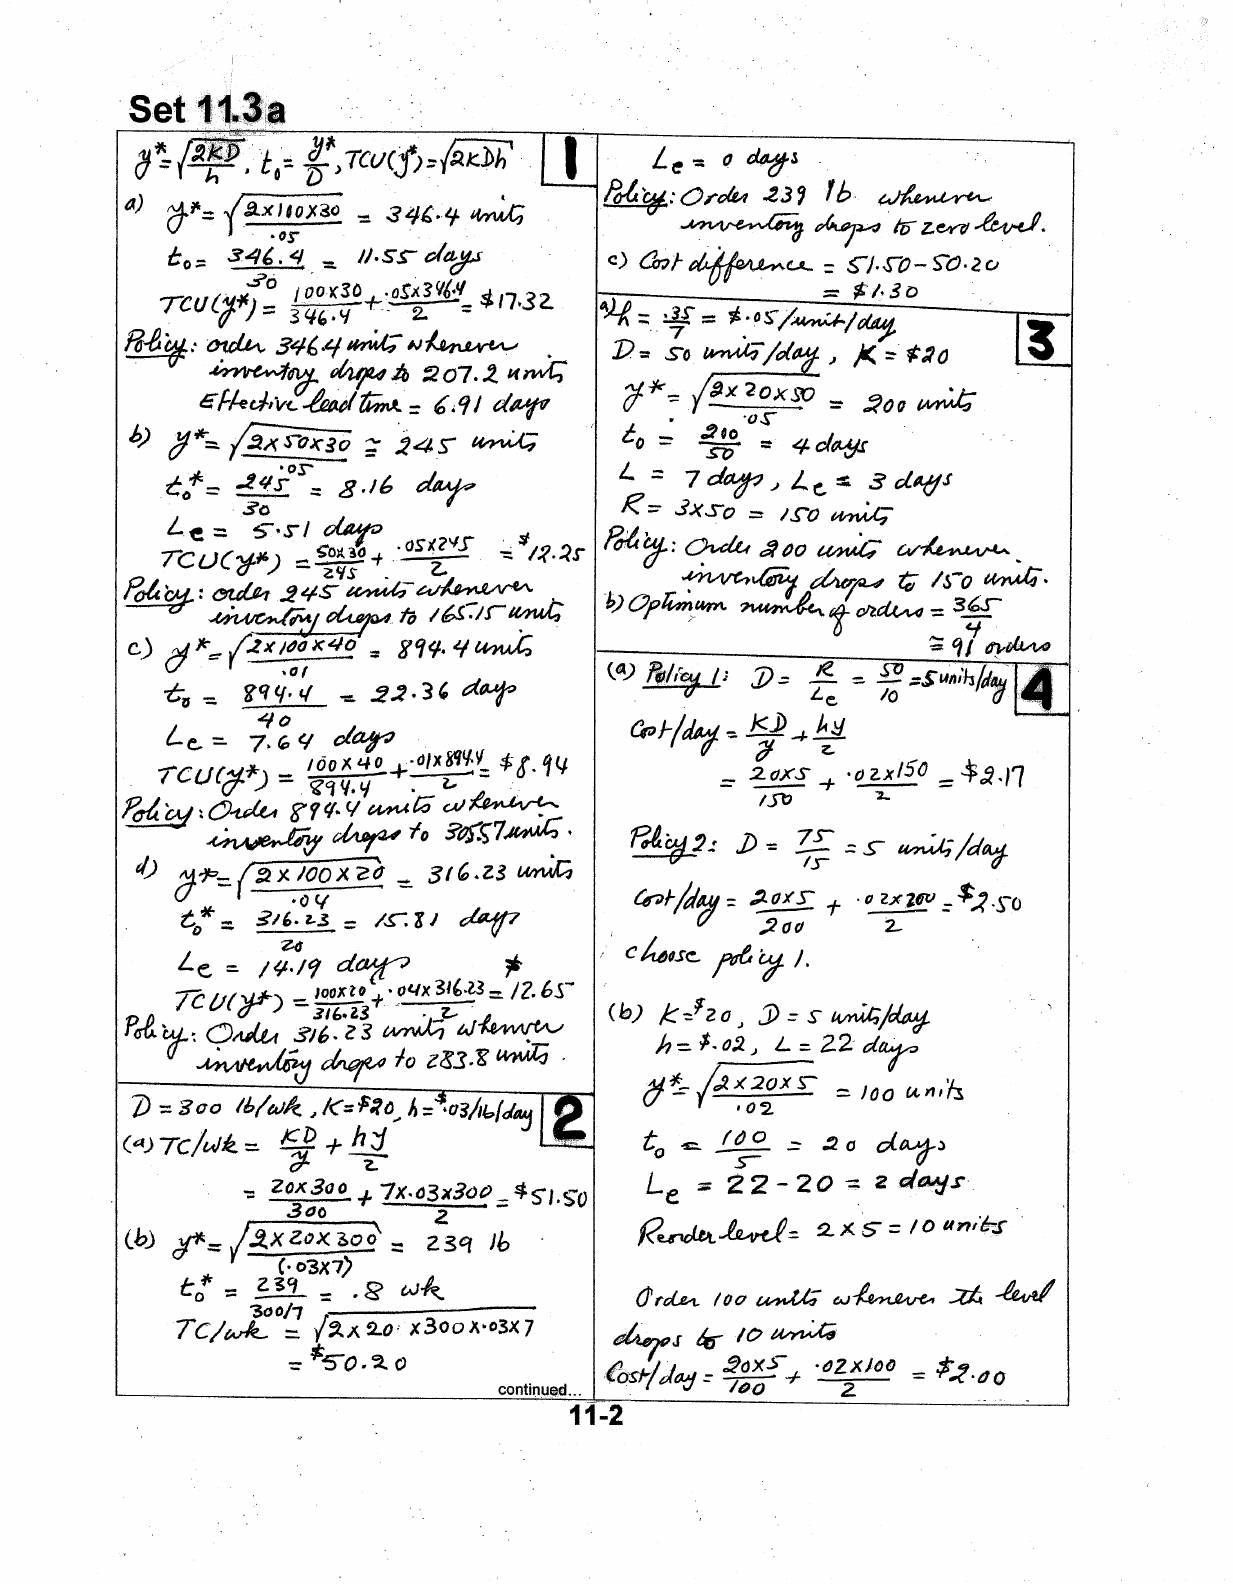 Set 11.3a
y* = √(2KD/h), t₀ = y*/D, TCU(y*) = √2KDh
1
a) y* = √(2x100x30/.05) = 346.4 units
t₀ = 346.4/30 = 11.55 days
TCU(y*) = 100x30/346.4 + .05x346.4/2 = $17.32
Policy: order 346.4 units whenever
inventory drops to 207.2 units
Effective lead time = 6.91 days
b) y* = √(2x50x30/.05) ≃ 245 units
t₀* = 245/30 = 8.16 days
Le = 5.51 days
TCU(y*) = 50x30/245 + .05x245/2 = $12.25
Policy: order 245 units whenever
inventory drops to 165.15 units
c) y* = √(2x100x40/.01) = 894.4 units
t₀ = 894.4/40 = 22.36 days
Le = 7.64 days
TCU(y*) = 100x40/894.4 + .01x894.4/2 = $8.94
Policy: Order 894.4 units whenever
inventory drops to 305.57 units.
d) y* = √(2x100x20/.04) = 316.23 units
t₀* = 316.23/20 = 15.81 days
Le = 14.19 days
TCU(y*) = 100x20/316.23 + .04x316.23/2 = $12.65
Policy: Order 316.23 units whenver
inventory drops to 283.8 units.
D = 300 lb/wk, K=$20, h=$.03/lb/day
2
(a) TC/wk = KD/y + hy/2
= 20x300/300 + 7x.03x300/2 = $51.50
(b) y* = √(2x20x300/(.03x7)) = 239 lb
t₀* = 239/300/7 = .8 wk
TC/wk = √2x20x300x.03x7
= $50.20
continued...
Le = 0 days
Policy: Order 239 lb whenever
inventory drops to zero level.
c) Cost difference = 51.50-50.20
= $1.30
a) h = .35/7 = $.05/unit/day
3
D = 50 units/day, K = $20
y* = √(2x20x50/.05) = 200 units
t₀ = 200/50 = 4 days
L = 7 days, Le = 3 days
R = 3x50 = 150 units
Policy: Order 200 units whenever
inventory drops to 150 units.
b) Optimum number of orders = 365/4
≅ 91 orders
(a) Policy 1: D = R/Le = 50/10 = 5 units/day
4
Cost/day = KD/y + hy/2
= 20x5/150 + .02x150/2 = $2.17
Policy 2: D = 75/15 = 5 units/day
Cost/day = 20x5/200 + .02x200/2 = $2.50
choose policy 1.
(b) K=$20, D = 5 units/day
h = $.02, L = 22 days
y* = √(2x20x5/.02) = 100 units
t₀ = 100/5 = 20 days
Le = 22-20 = 2 days
Reorder level = 2x5 = 10 units
Order 100 units whenever the level
drops to 10 units
Cost/day = 20x5/100 + .02x100/2 = $2.00
11-2